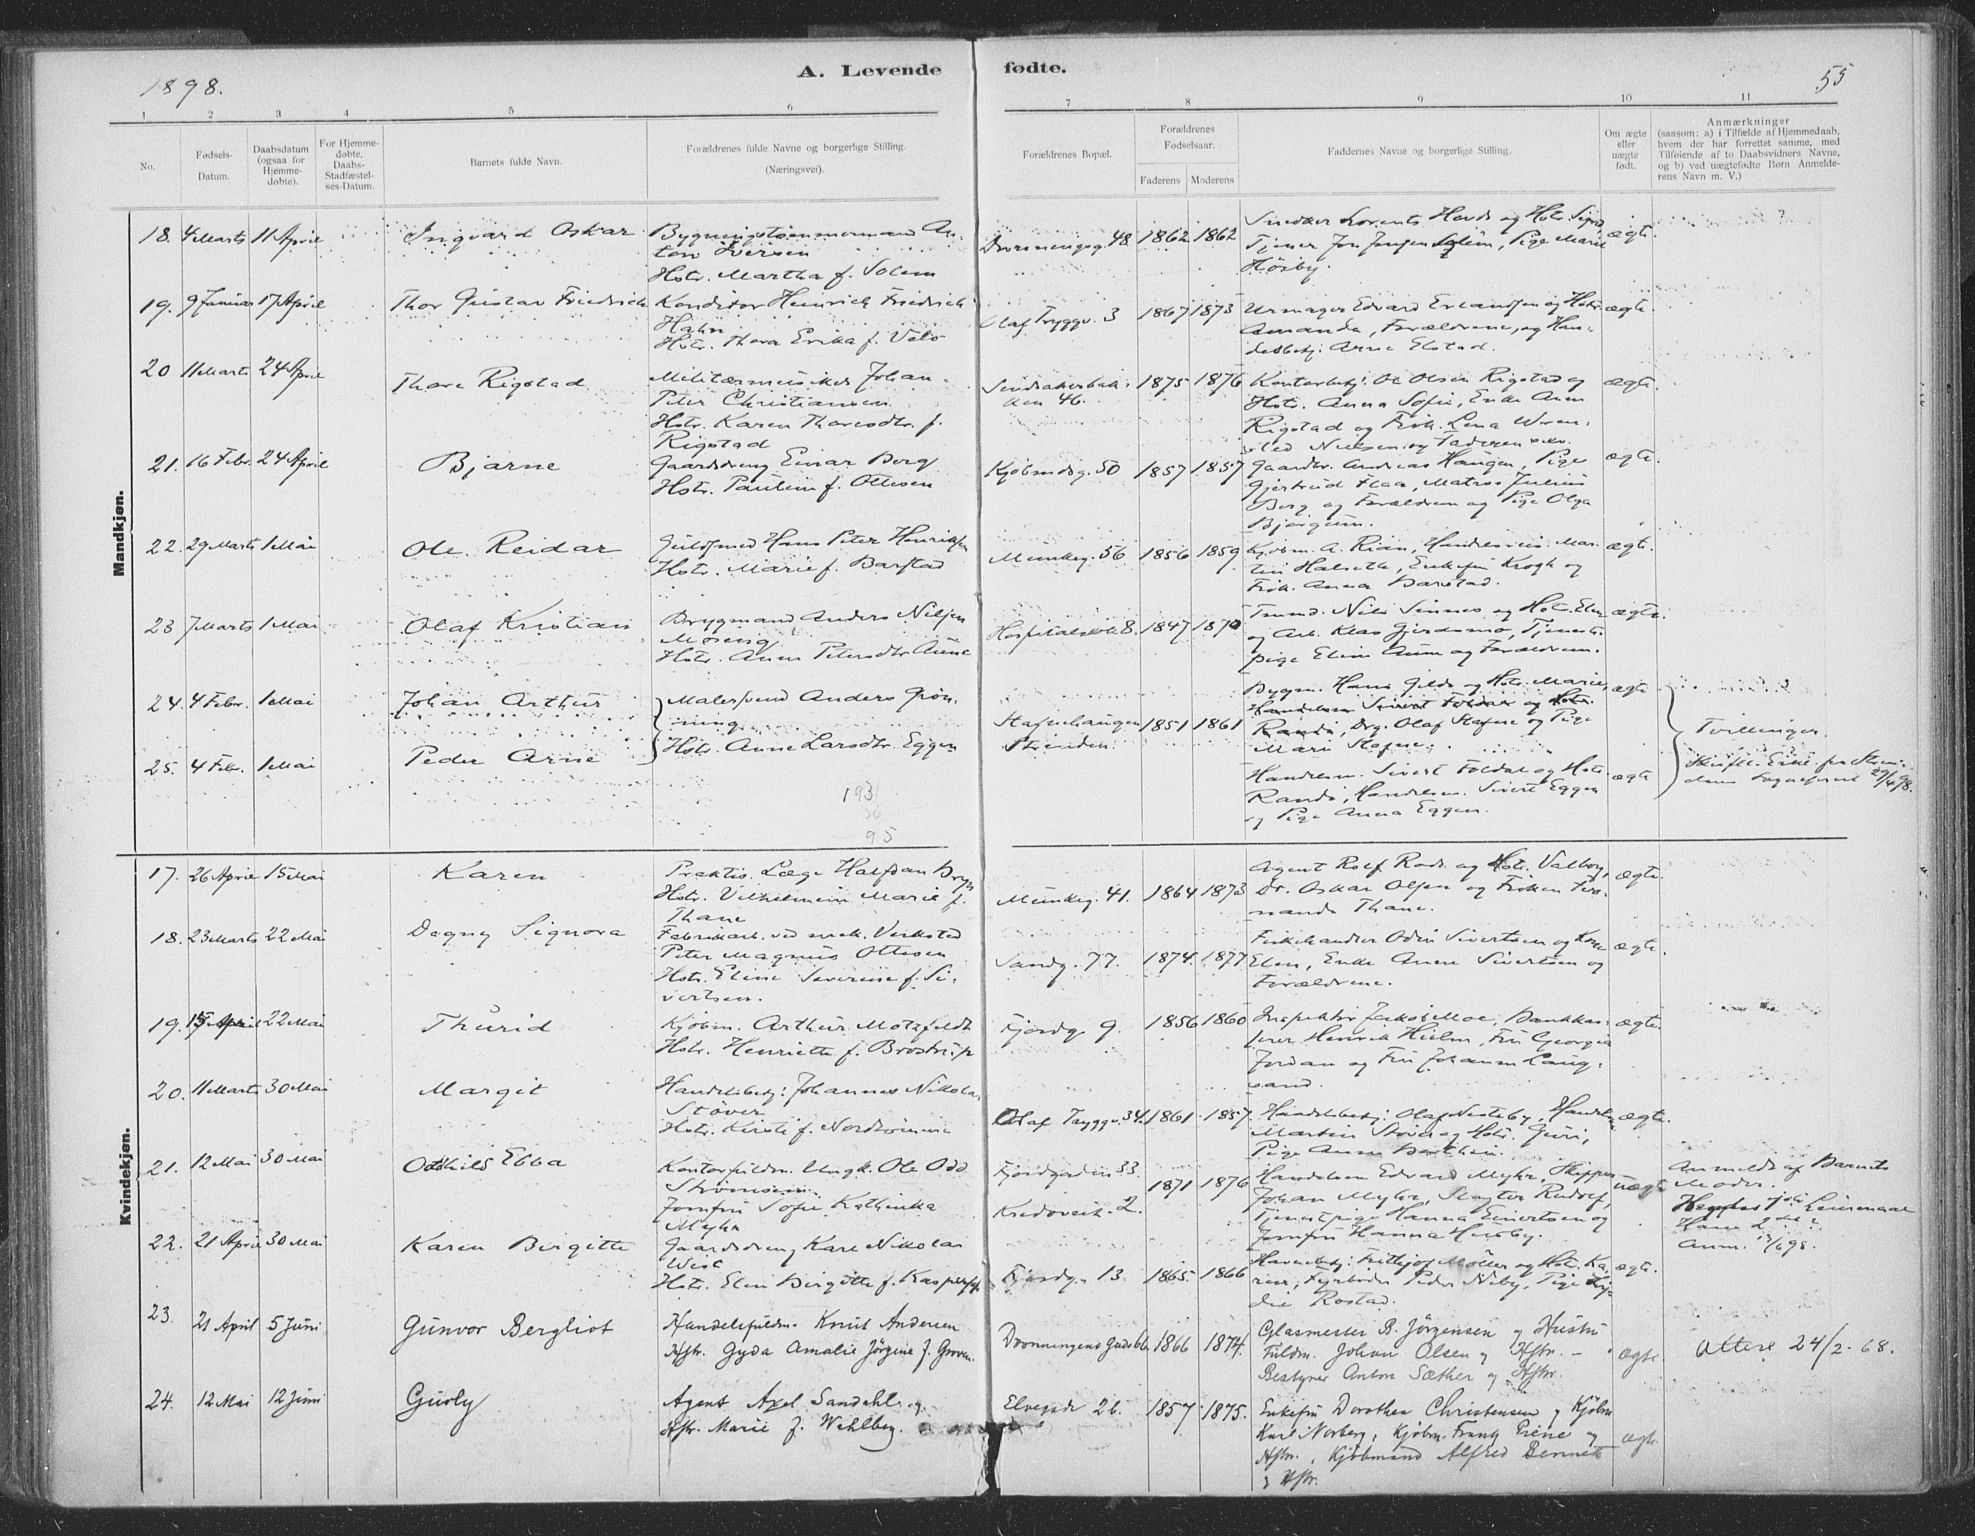 1898.
A. Levende fødte.
55
1 2 3 4 5 6 7 8 9 10 11
No.
Fødsels-
Datum.
Daabsdatum
(ogsaa for
Hjemme-
døbte).
For Hjemme-
døbte,
Daabs-
Stadfæstel-
ses-Datum.
Barnets fulde Navn.
Forældrenes fulde Navne og borgerlige Stilling.
(Næringsvei).
Forældrenes Bopæl.
Forældrenes
Fødselsaar.
Faderens Moderens
Faddernes Navne og borgerlige Stilling.
Om ægte
eller
uægte
født.
Anmærkninger
(saasom: a) i Tilfælde af Hjemmedaab,
hvem der har forrettet samme, med
Tilføiende af to Daabsvidners Navne,
og b) ved uægtefødte Børn Anmelde-
rens Navn m. V.)
Mandkjøn.
18. 4 Marts 11 April Ingvard Oskar Bygningstømmermand An-
ton Iversen
Hstr. Martha f. Solem
Dronningsg. 48. 1862 1862
Snedker Lorents Hovd og Hstr.
Tjener Jon Solem, Pige Marie
Høiby.
ægte.
19. 9 Januar 17 April Thor Gustav Friedrich Konditor Heinrich Friedrich
Hahn
Hstr. Thora Erika f. Velo
Olaf Tryggv. 3 1867 1873
Urmager Edvard Erlandsen og Hstr.
Amanda, Forældrene, og Han-
delsbetj. Arne Elstad.
ægte.
20 11 Marts 24 April Thore Rigstad Militærmusiker Johan
Peter Christiansen
Hstr. Karen Thoresdtr. f.
Rigstad
Sindsakerbak-
ken 46. 1875 1876
Kontorbetj. Ole Olsen Rigstad og
Hstr. Anna Sofie, Enke Ane
Rigstad og Frk. Lena
Nielsen og Faderen selv.
ægte.
21. 16 Febr. 24 April Bjarne Gaardsdreng Einar Berg
Hstr. Pauline f. Ottesen
Kjøbmdsg. 50 1857 1857
Gaardbr. Andreas Haugen, Pige
Gjertrud Flaa, Matros Julius
Berg og Forældrene og Pige Olga
Bjørgum.
ægte.
22. 29 Marts 1 Mai Ole Reidar Guldsmed Hans Peter Henriksen
Hstr. Marie f. Barstad
Munkeg. 56 1856 1859
Kjøbm. A. Rian, Handelsreis. Mar-
tin Halseth, Enkefru Krogh og
Frk. Anna Barstad.
ægte.
23 7 Marts 1 Mai Olaf Kristian Brygmand Anders Nilsen
Moseng
Hstr. Anne Petersdtr. Aune
Hospitalsløk. 8. 1847 1870
Tmmd. Nils Sinnes og Hstr. Elen
og Arb. Klas Gjerdsmo, Tjeneste-
pige Eline Aune og Forældrene.
ægte
24. 4 Febr. 1 Mai Johan Arthur Malersvend Anders Grøn-
ning
Hstr. Anne Larsdtr. Eggen
Stavnehaugen
Strinden. 1851 1861
Bygm. Hans Gilde og Hstr. Marie,
Handelsm. Sivert Foldal og Hstr.
Randi, Drg. Olaf Stavne og Pige
Mari Stavne.
ægte
Tvillinger.
25. 4 Febr. 1 Mai Peder Arne
Handelsm. Sivert Foldal og Hstr.
Randi, Handelsm. Sivert Eggen
og Pige Anna Eggen.
ægte
29/4 98.
193
36
95
Kvindekjøn.
17. 26 April 15 Mai Karen Praktis. Læge Halfdan Bryn
Hstr. Vilhelmine Marie f.
Thane
Munkeg. 41. 1864 1873
Agent Rolf Rode og Hstr. Valborg,
Dr. Oskar Olsen og Frøken Fer-
nanda Thane.
ægte.
18. 23 Marts 22 Mai Dagny Signora Fabrikarb. ved mek. Verksted
Peter Magnus Ottesen
Hstr. Eline Severine f. Si-
vertsen.
Sandg. 77. 1874. 1877
Fiskehandler Odin Sivertsen og Kone
Elen, Enke Anne Sivertsen og
Forældrene.
ægte.
19. 15 April 22 Mai Thurid Kjøbm. Arthur Motzfeldt
Hstr. Henriette f. Brostrøp
Fjordg. 9. 1856 1860
Inspektør Jakob Moe, Bankkas-
serer Henrik Hielm, Fru Georgia
Jordan og Fru Johanne Lang-
sand.
ægte.
20. 11 Marts 30 Mai Margit Handelsbetj: Johannes Nikolai
Støver
Hstr. Kirsti f. Nordtømme
Olaf Tryggv. 34. 1861 1857
Handelsbetj: Olaf Nesteby, Handelsm.
Martin Støver og Hstr. Guri,
Pige Anne
ægte.
21. 12 Mai 30 Mai Odthild Ebba Kontorfuldm. Ungk. Ole Odd
Strømsen
Jomfru Sofie Kathinka
Myhr
Fjordgaden 33
2. 1871 1876
Handelsm Edvard Myhr, Skipper
Johan Myhr, Slagter Rudolf,
Tjenestpige Hanna Sivertsen og
Jomfru Hanna Huseby.
uægte
Anmeldt af Barnets
Moder.
Hendes 1ste Leiermaal
Hans 2det
Anm. 13/6 98.
22. 21 April 30 Mai Karen Birgitte Gaardsdreng Karl Nikolai
West
Hstr. Elen Birgitte f. Kaspersen
Fjordg. 13. 1865. 1866
Havnebetj: Fritjof Møller og Hstr. Ka-
rine, Fyrbøder Peder Neby, Pige
Rostad.
ægte.
23. 21 April 5 Juni Gunvor Bergliot Handelsfuldm. Knut Andersen
Hstr. Gyda Amalie Jörgine f. Groven.
Dronningens Gade 66 1866 1874.
Glasmester B. Jörgensen og Hustru
Fuldm. Johan Olsen og Hstr. –
Bestyrer Anton Sæther og Hstr.
ægte.
Attest 24/2-68.
24. 12 Mai 12 Juni Gurly Agent Axel Sandahl og
Hstr. Marie f. Wehlberg.
Elvegade 26. 1857 1875.
Enkefru Dorothea Christensen og Kjöbm
Karl Norberg, Kjöbm. Frantz Piene og
Hstr., Kjöbmand Alfred Bennett
og Hstr.
ægte.